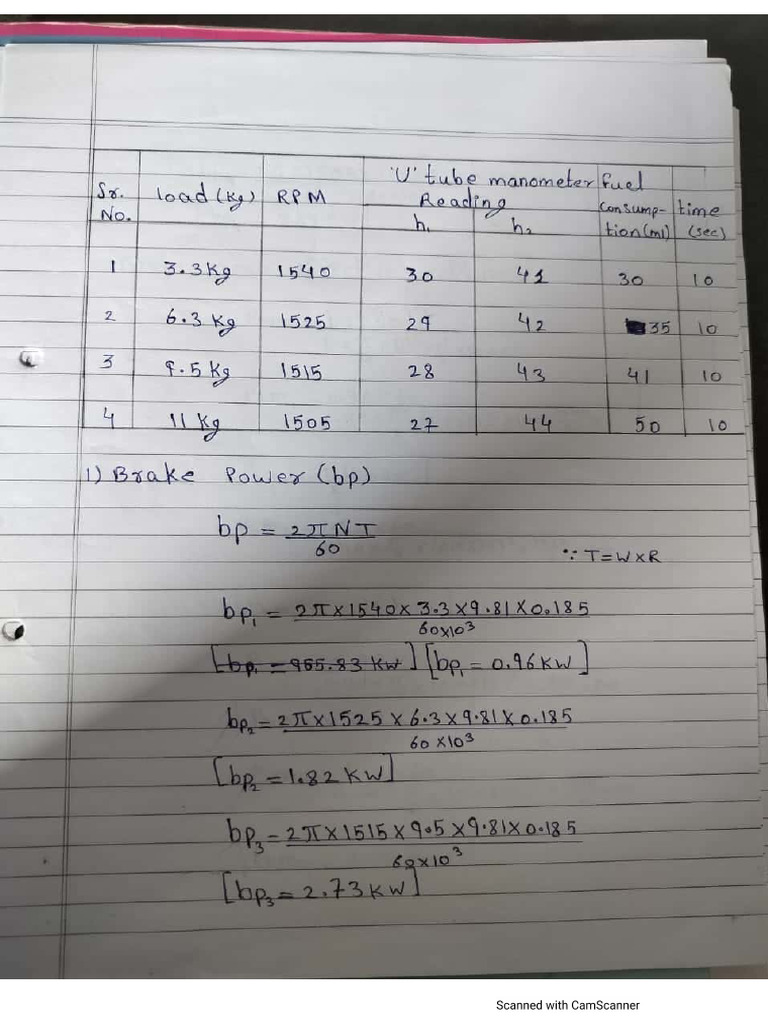 Sr. No. | load (kg) | RPM | 'U' tube manometer Reading h₁ | h₂ | fuel consump-tion (ml) | time (sec)
1 | 3.3 Kg | 1540 | 30 | 41 | 30 | 10
2 | 6.3 Kg | 1525 | 29 | 42 | 35 | 10
3 | 9.5 Kg | 1515 | 28 | 43 | 41 | 10
4 | 11 Kg | 1505 | 27 | 44 | 50 | 10
1) Brake Power (bp)
bp = 2πNT / 60
∵ T = W × R
bp₁ = 2π × 1540 × 3.3 × 9.81 × 0.185 / 60 × 10³
[bp₁ = 965.83 KW] [bp₁ = 0.96 KW]
bp₂ = 2π × 1525 × 6.3 × 9.81 × 0.185 / 60 × 10³
[bp₂ = 1.82 KW]
bp₃ = 2π × 1515 × 9.5 × 9.81 × 0.185 / 60 × 10³
[bp₃ = 2.73 KW]
Scanned with CamScanner